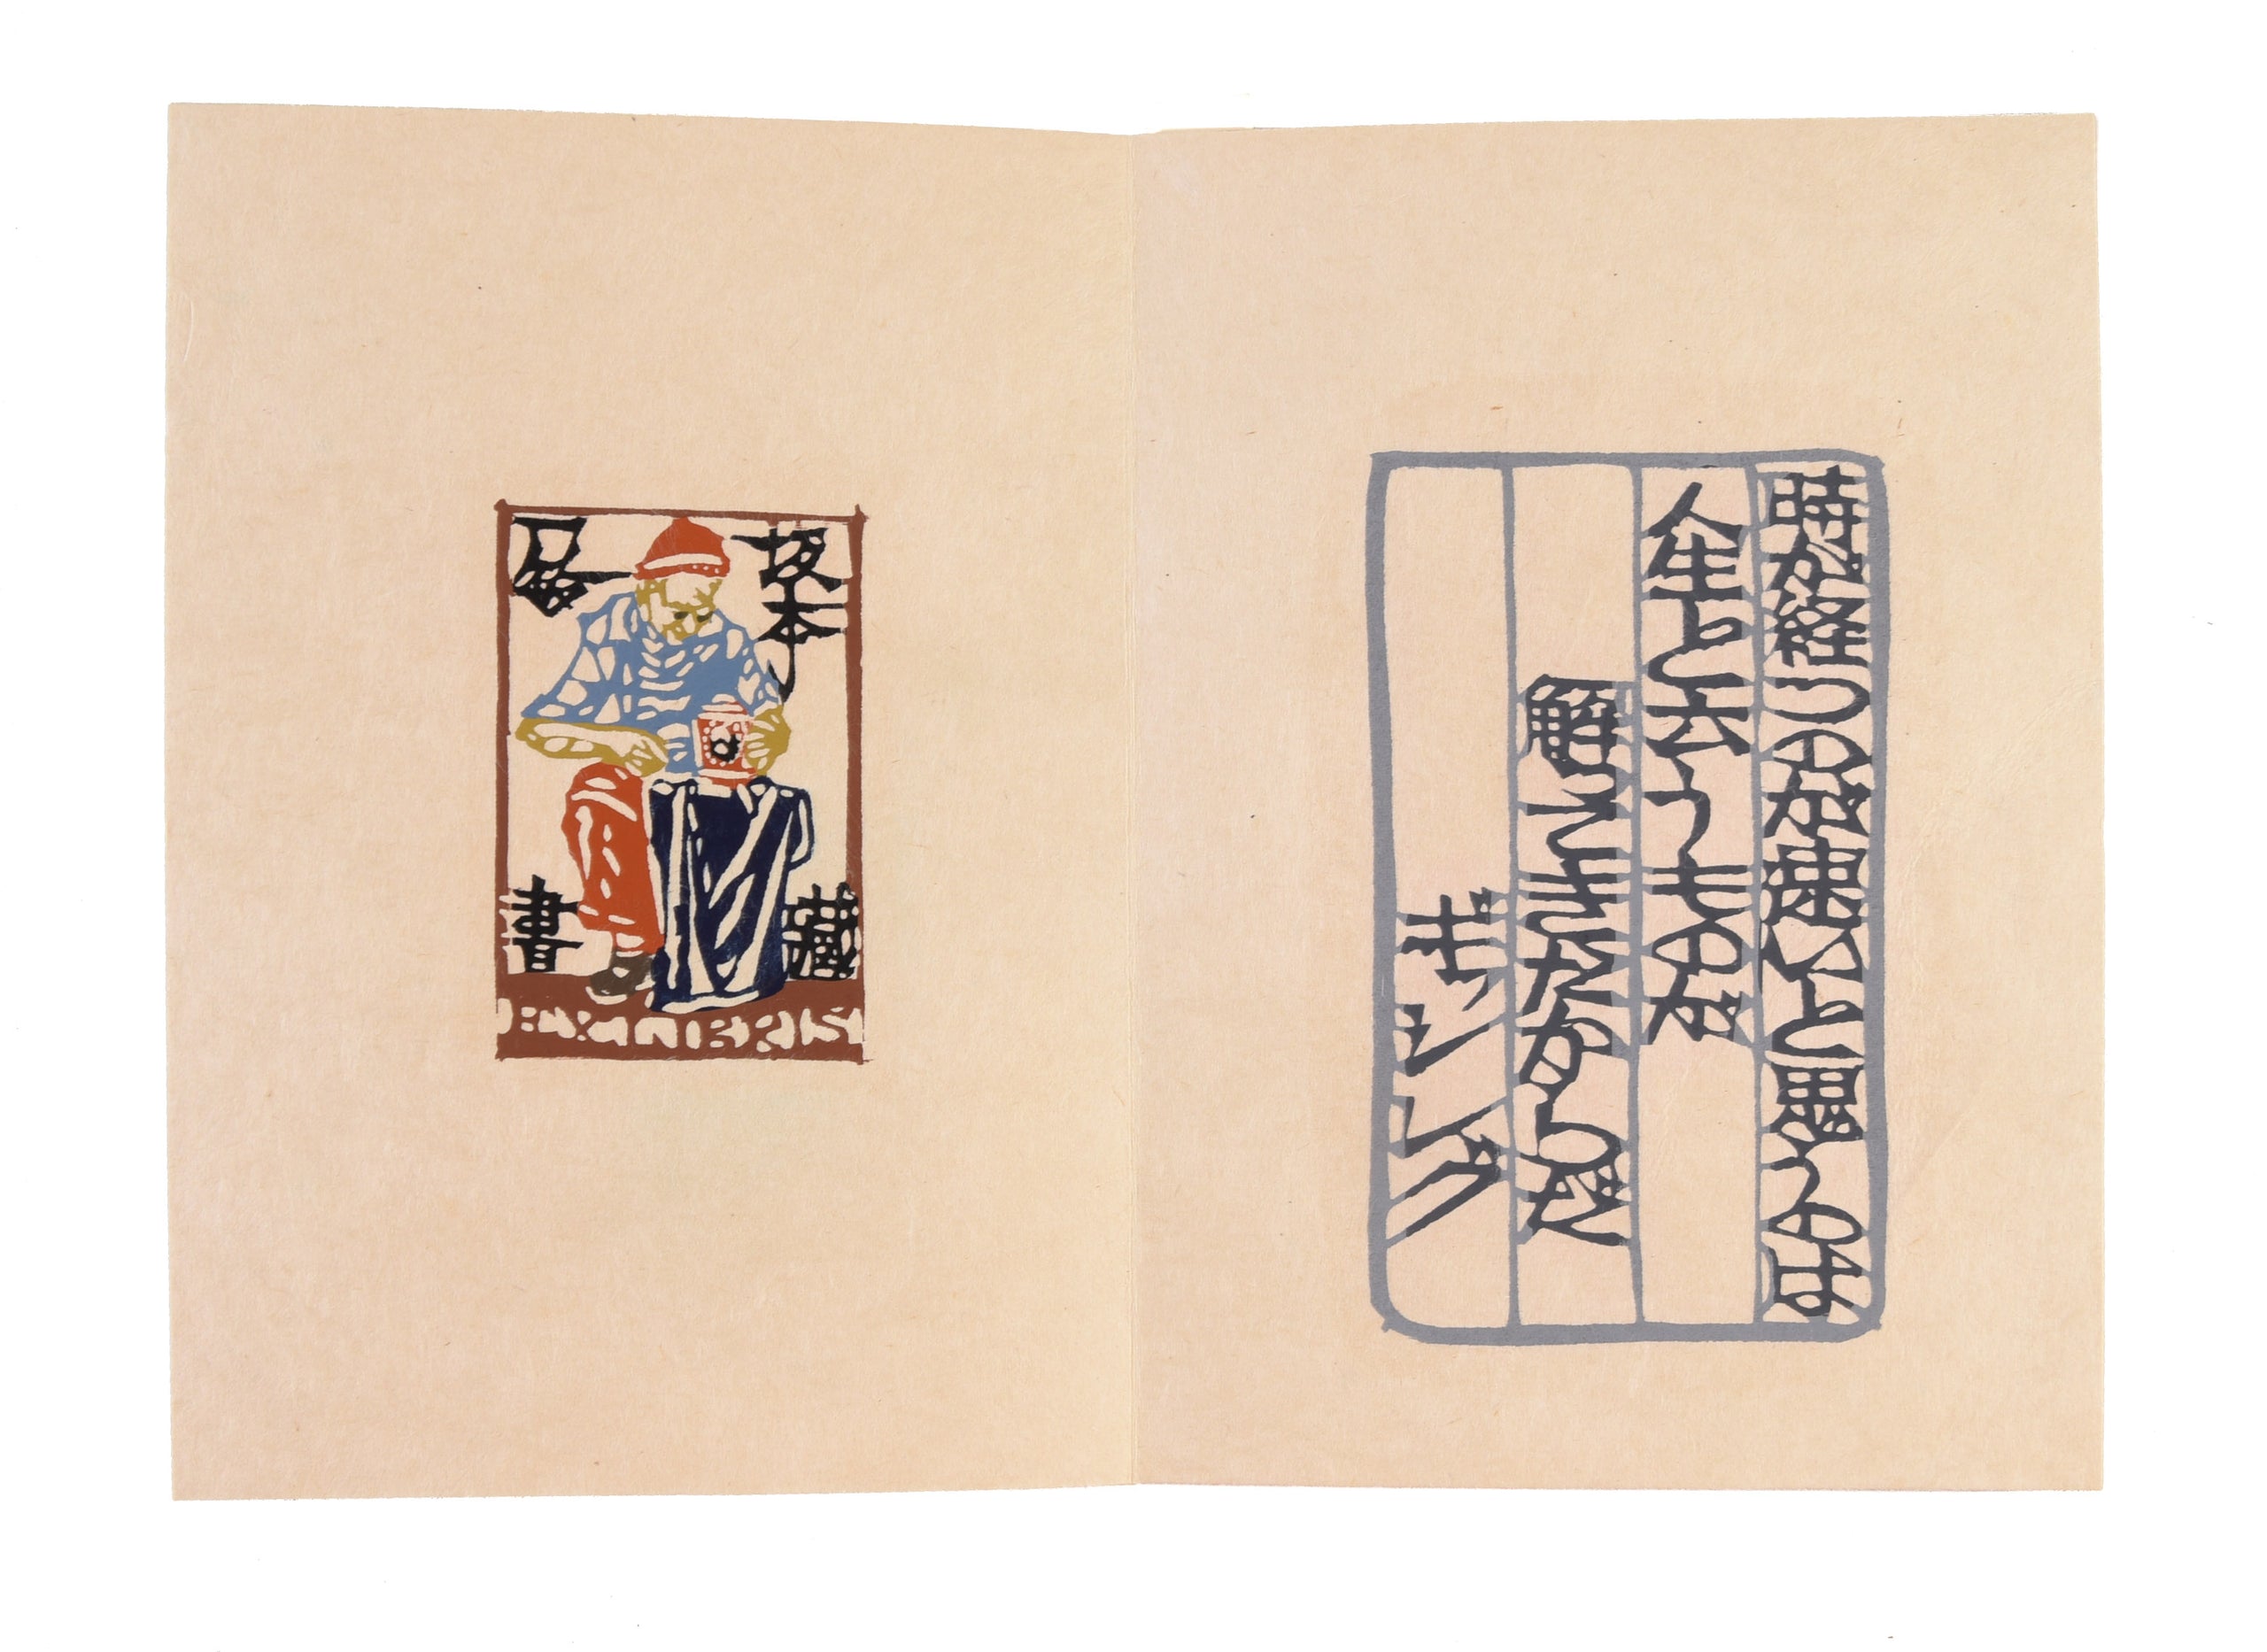 時が経つのが速いと思うのは
人生と云うものが
解ってきたからだ
ギッシング
坂本
藏
書
EXLIBRIS